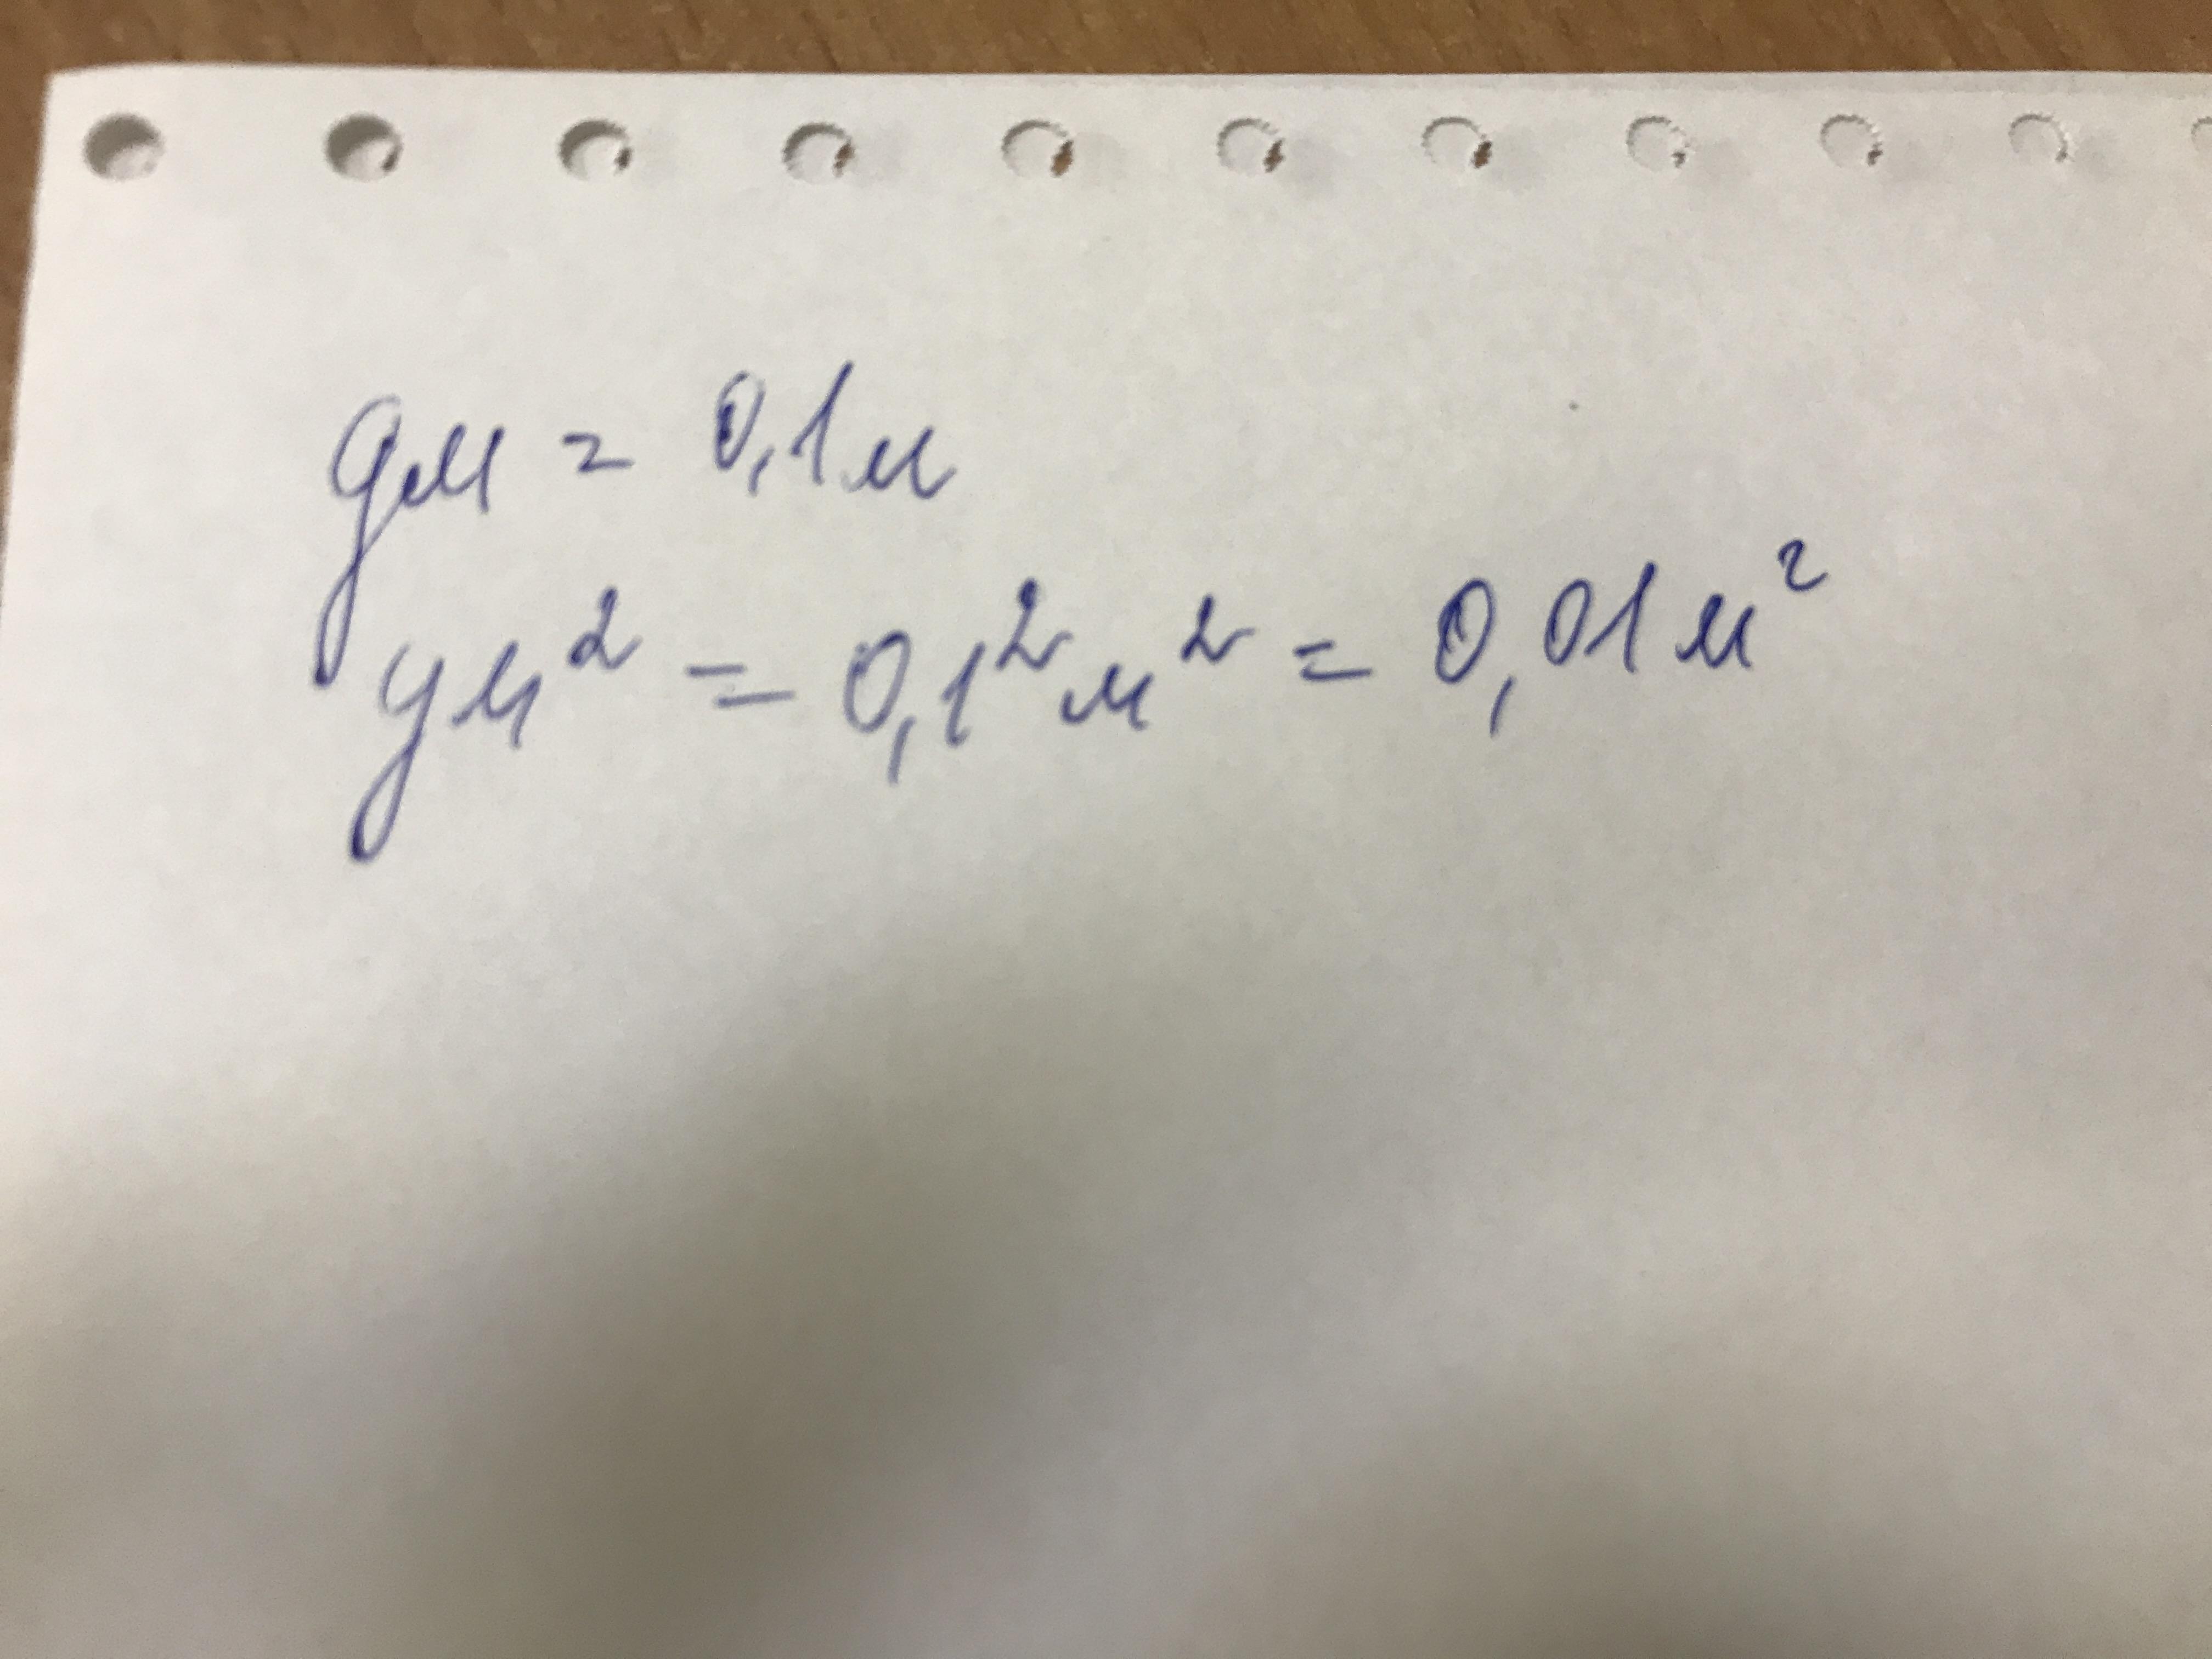 дм = 0,1м
дм² = 0,1²м² = 0,01м²